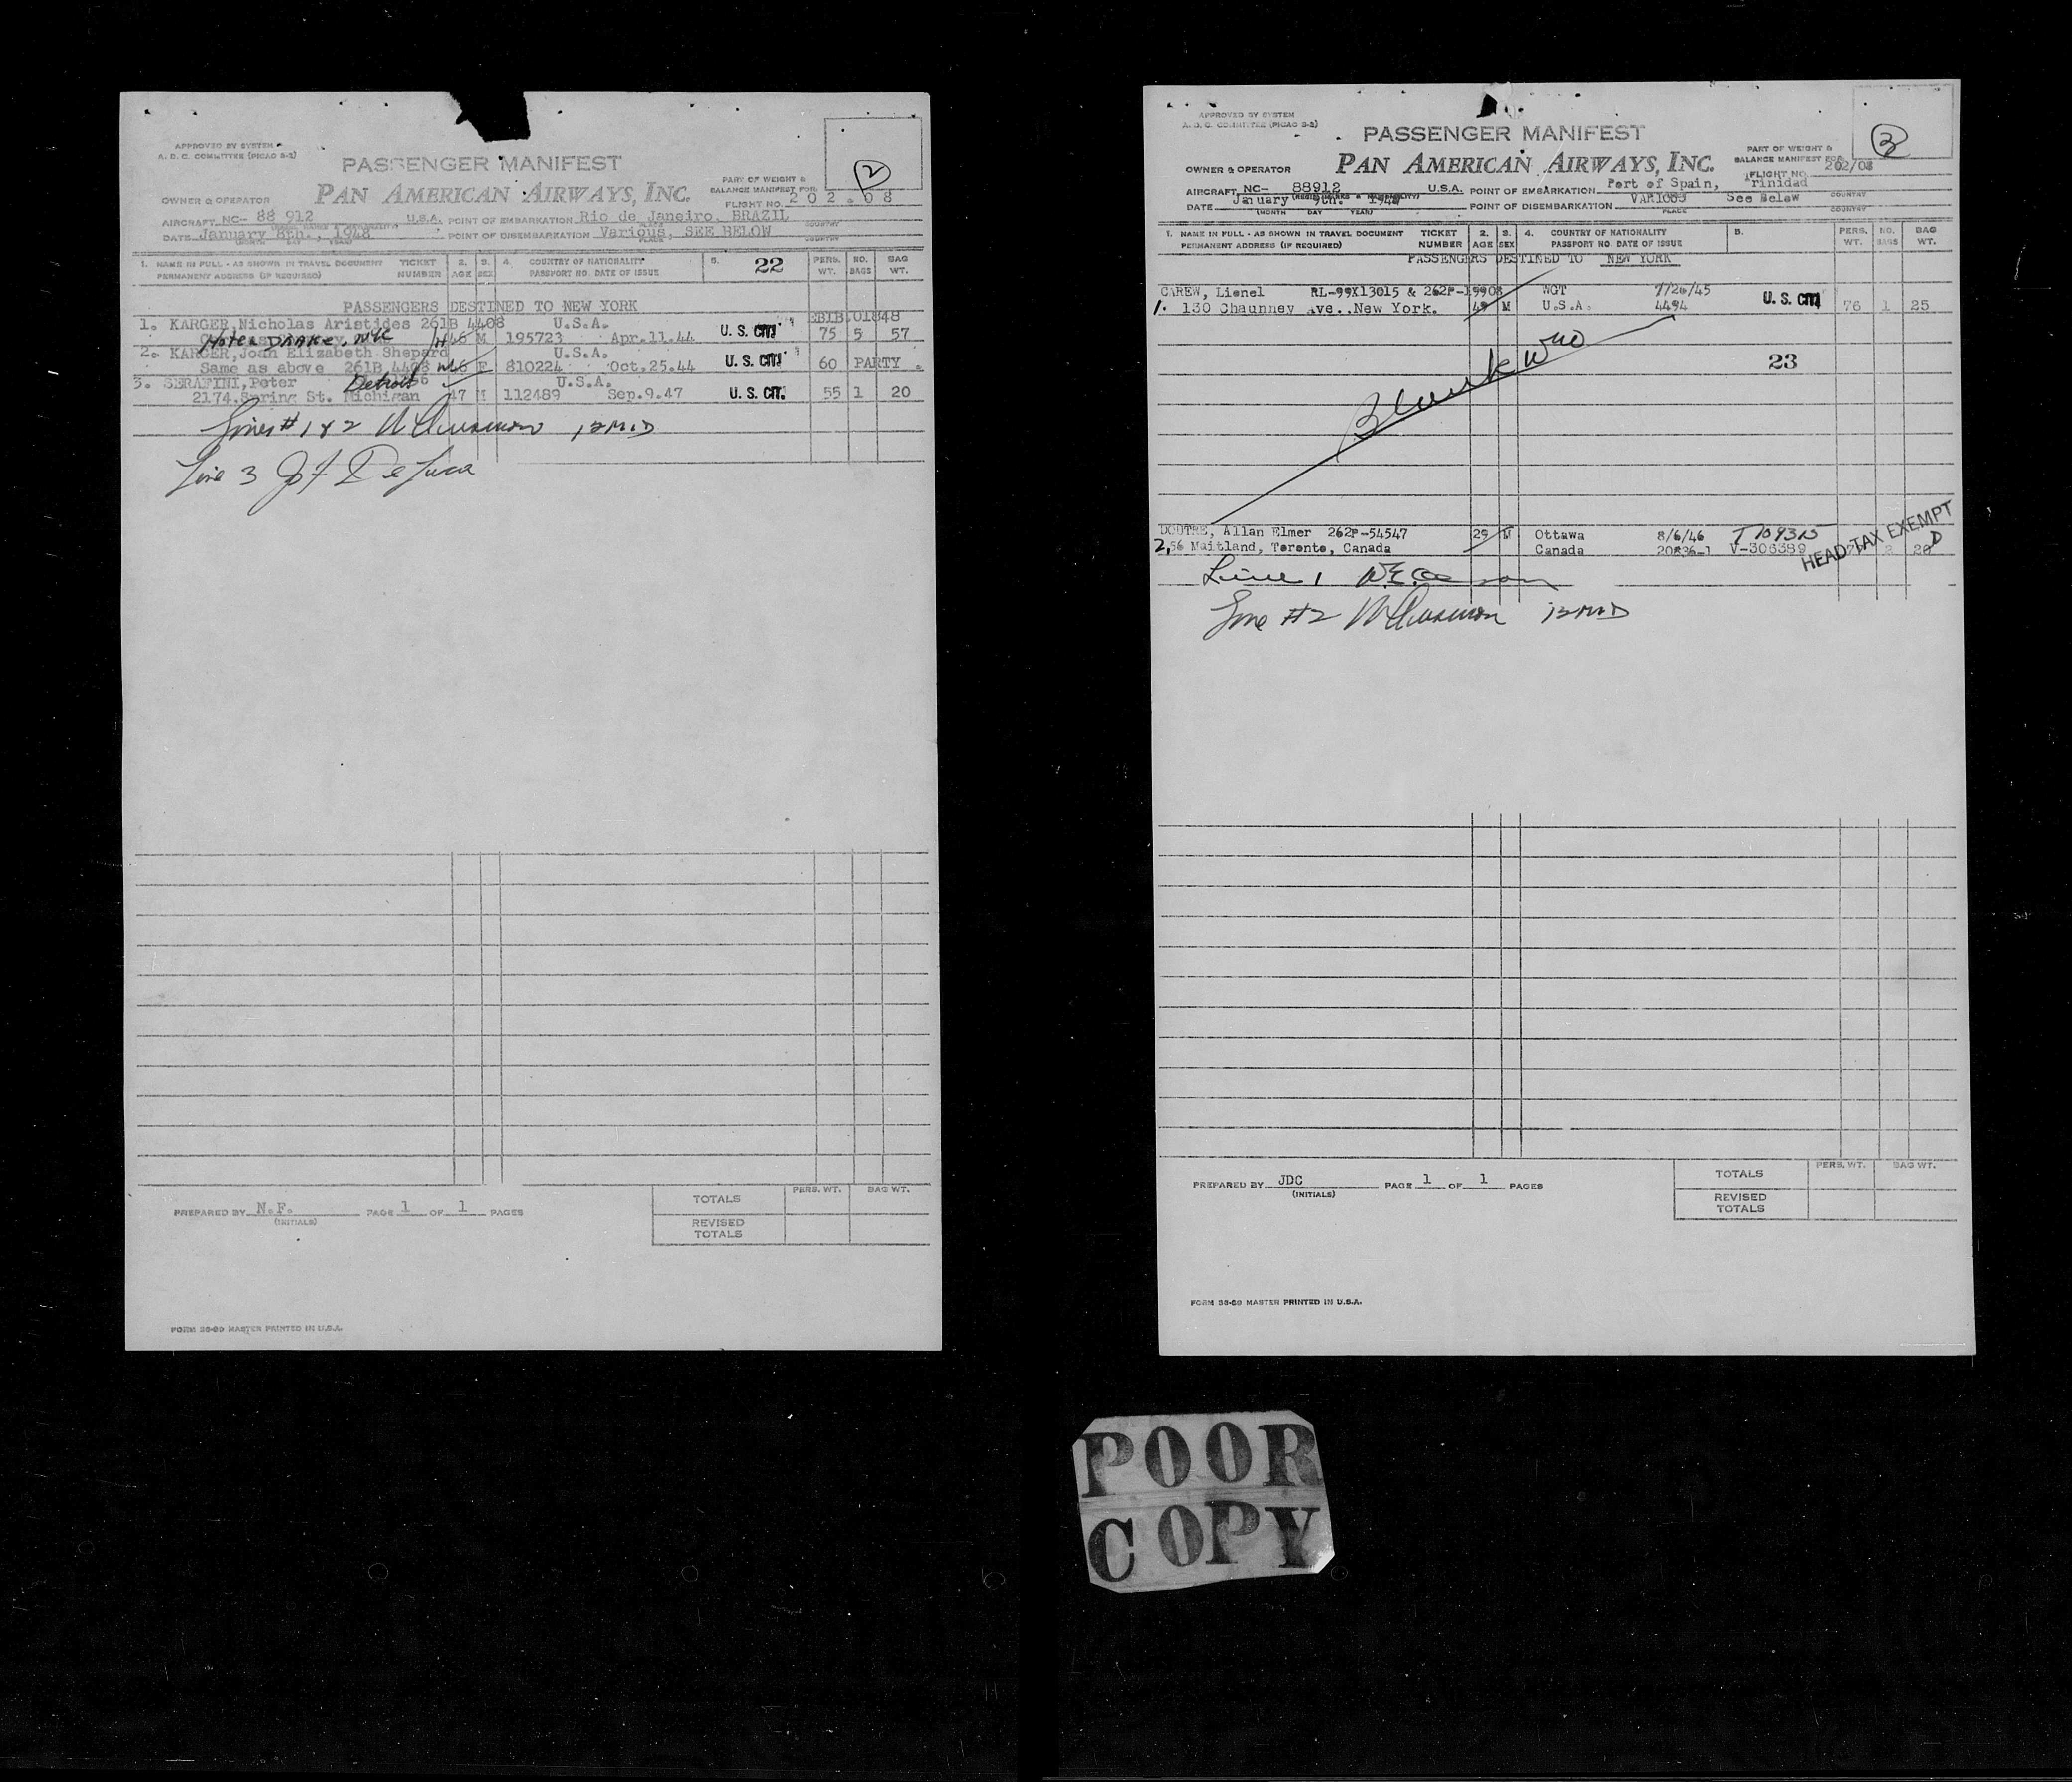 APPROVED BY SYSTEM
A. D. C. COMMITTEE (PICAO S-2)
2
PASSENGER MANIFEST
PART OF WEIGHT &
BALANCE MANIFEST FOR
OWNER & OPERATOR PAN AMERICAN AIRWAYS, INC.
FLIGHT NO. 202.08
AIRCRAFT NC- 88 912 U.S.A. POINT OF EMBARKATION Rio de Janeiro, BRAZIL COUNTRY
DATE January 8th., 1948 POINT OF DISEMBARKATION Various, SEE BELOW
(MONTH DAY YEAR) PLACE COUNTRY
1. NAME IN FULL - AS SHOWN IN TRAVEL DOCUMENT TICKET 2. 3. 4. COUNTRY OF NATIONALITY 5. 22 PERS. NO. BAG
PERMANENT ADDRESS (IF REQUIRED) NUMBER AGE SEX PASSPORT NO. DATE OF ISSUE WT. BAGS WT.
PASSENGERS DESTINED TO NEW YORK
1. KARGER, Nicholas Aristides 261B 4408 U.S.A. EBIB.01848
Hotel DRAKE, NYC M 195723 Apr.11.44 U. S. CIT. 75 5 57
2. KARGER, Joan Elizabeth Shepard U.S.A.
Same as above 261B 4408 F 810224 Oct,25.44 U. S. CIT. 60 PARTY.
3. SERAFINI, Peter Detroit U.S.A.
2174, Spring St. Michigan 47 M 112489 Sep.9.47 U. S. CIT. 55 1 20
Lines # 1 & 2
Line 3 De Luca
PREPARED BY N.F. PAGE 1 OF 1 PAGES
(INITIALS)
TOTALS PERS. WT. BAG WT.
REVISED
TOTALS
FORM 36-69 MASTER PRINTED IN U.S.A.
APPROVED BY SYSTEM
A. D. C. COMMITTEE (PICAO S-2)
3
PASSENGER MANIFEST
PART OF WEIGHT &
BALANCE MANIFEST FOR
OWNER & OPERATOR PAN AMERICAN AIRWAYS, INC.
FLIGHT NO. 202/08
AIRCRAFT NC- 88912 U.S.A. POINT OF EMBARKATION Port of Spain, Trinidad
DATE January 9th. 1948 POINT OF DISEMBARKATION See Below
(MONTH DAY YEAR) PLACE COUNTRY
1. NAME IN FULL - AS SHOWN IN TRAVEL DOCUMENT TICKET 2. 3. 4. COUNTRY OF NATIONALITY 5. PERS. NO. BAG
PERMANENT ADDRESS (IF REQUIRED) NUMBER AGE SEX PASSPORT NO. DATE OF ISSUE WT. BAGS WT.
PASSENGERS DESTINED TO NEW YORK
CAREW, Lionel RL-99X13015 & 262P-19908 WGT 7/26/45
1. 130 Chaunney Ave..New York. 49 M U.S.A. 4494 U. S. CIT. 76 1 25
23
Blank
DOUTRE, Allan Elmer 262P-54547 29 M Ottawa 8/6/46 T109315
2. 56 Maitland, Toronto, Canada Canada V-306389
HEAD TAX EXEMPT
Line 1
Line #2
PREPARED BY JDC PAGE 1 OF 1 PAGES
(INITIALS)
TOTALS PERS. WT. BAG WT.
REVISED
TOTALS
FORM 36-69 MASTER PRINTED IN U.S.A.
POOR
COPY